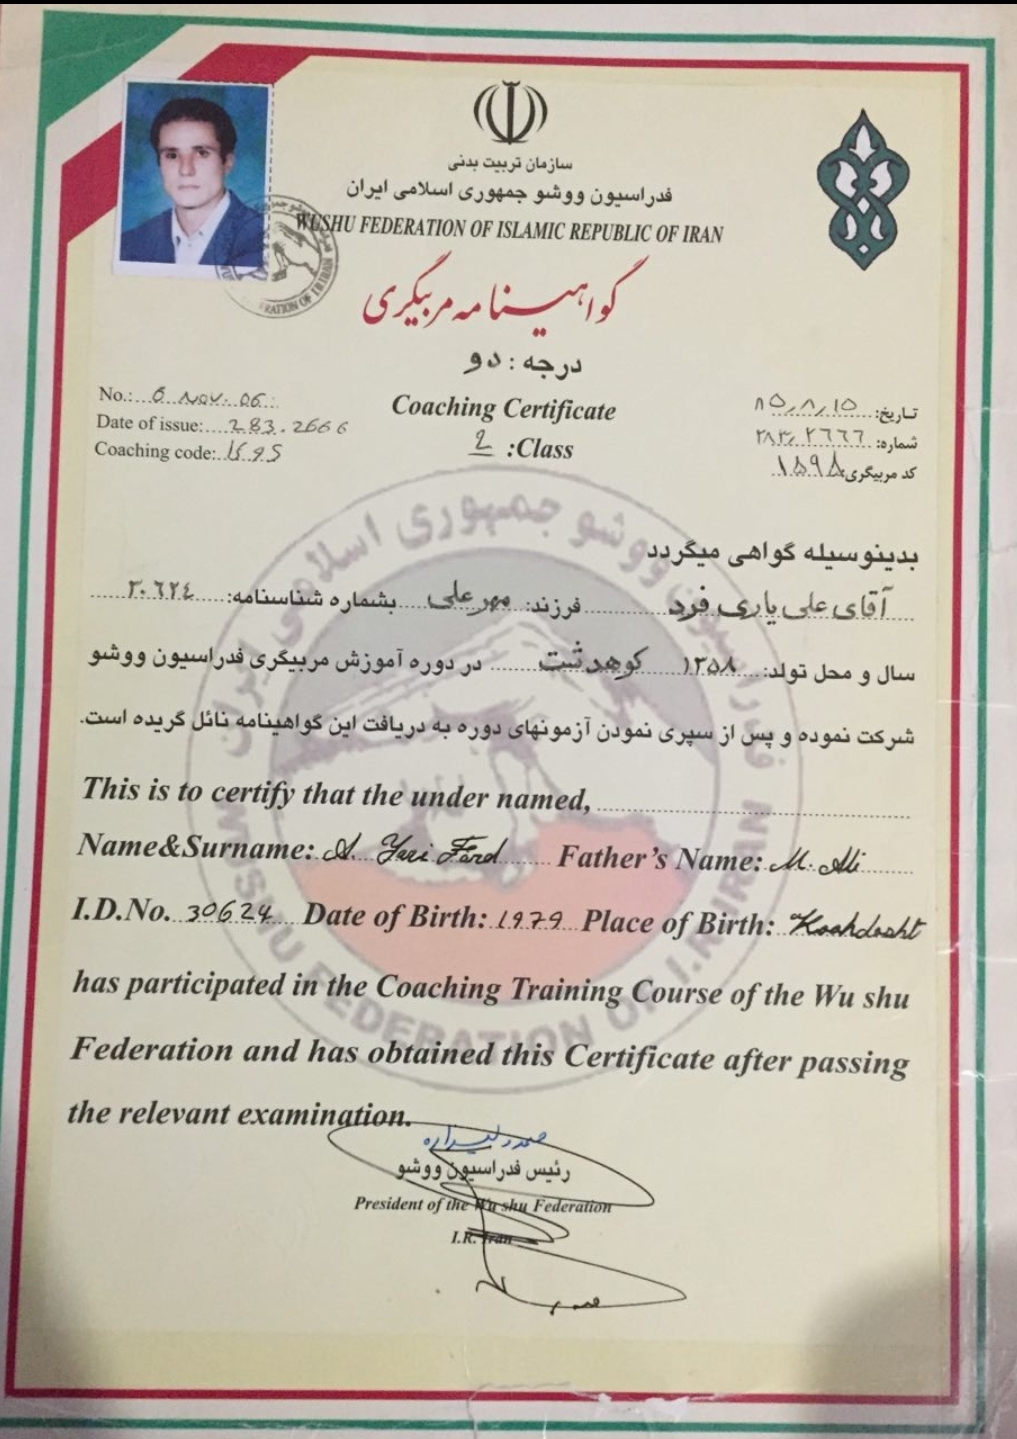 سازمان تربیت بدنی
فدراسیون ووشو جمهوری اسلامی ایران
WUSHU FEDERATION OF ISLAMIC REPUBLIC OF IRAN
گواهینامه مربیگری
درجه : دو
Coaching Certificate
2 :Class
No.: 6 Nov. 06
Date of issue: 283.2666
Coaching code: 1595
تاریخ: ۸۵/۸/۱۵
شماره: ۲۸۳/۲۶۶۶
کد مربیگری: ۱۵۹۵
بدینوسیله گواهی میگردد
آقای علی یاری فرد فرزند: مهرعلی بشماره شناسنامه: ۳۰۶۲۴
سال و محل تولد: ۱۳۵۸ کوهدشت در دوره آموزش مربیگری فدراسیون ووشو
شرکت نموده و پس از سپری نمودن آزمونهای دوره به دریافت این گواهینامه نائل گریده است.
This is to certify that the under named,
Name&Surname: A. Yari Fard Father's Name: M. Ali
I.D.No. 30624 Date of Birth: 1979 Place of Birth: Koohdasht
has participated in the Coaching Training Course of the Wu shu
Federation and has obtained this Certificate after passing
the relevant examination.
رئیس فدراسیون ووشو
President of the Wu shu Federation
I.R. Iran
فدراسیون ووشو جمهوری اسلامی ایران
WUSHU FEDERATION OF I.R.IRAN